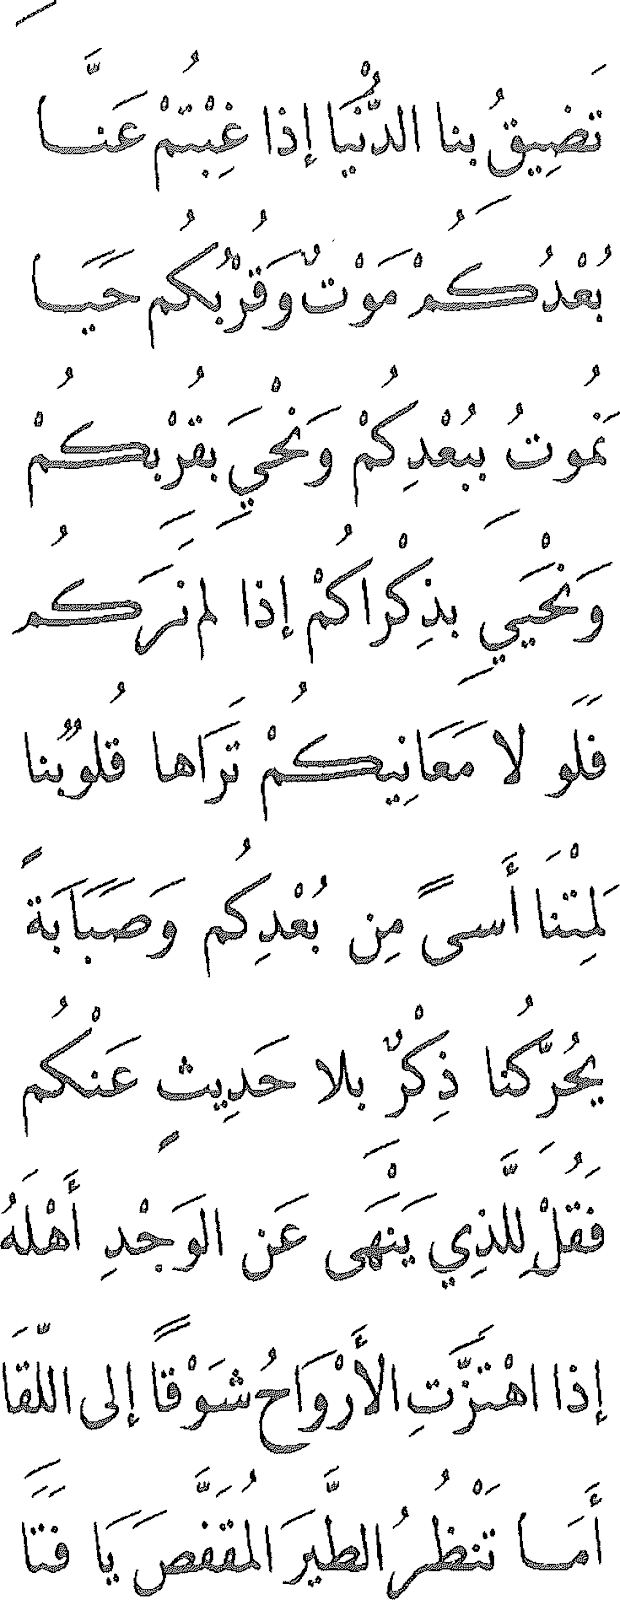 تَضِيقُ بنا الدُّنْيَا إذا غِبْتُمْ عَنَّا
بُعْدُكُمْ مَوْتٌ وَقُرْبُكُم حَيَا
نَمُوتُ بِبُعْدِكُمْ وَنَحْيَ بِقُرْبِكُمْ
وَنَحْيَي بِذِكْرَاكُمْ إذا لم نَرَكُم
فَلَو لا مَعَانِيكُمْ تَرَاها قُلوبُنا
لَمِتْنَا أَسىً مِن بُعْدِكُم وَصَبَابَةً
يحُرِّكُنا ذِكْرٌ بلا حَدِيثٍ عَنْكُم
فَقُلْ لِلَّذِي يَنْهَى عَن الوَجْدِ أَهْلَهُ
إذا اهْتَزَّتِ الأَرْوَاحُ شَوْقًا إلى اللّقَا
أَمَا تَنْظُرُ الطَّيرَ المُقَفَّصَ يَا فَتًا